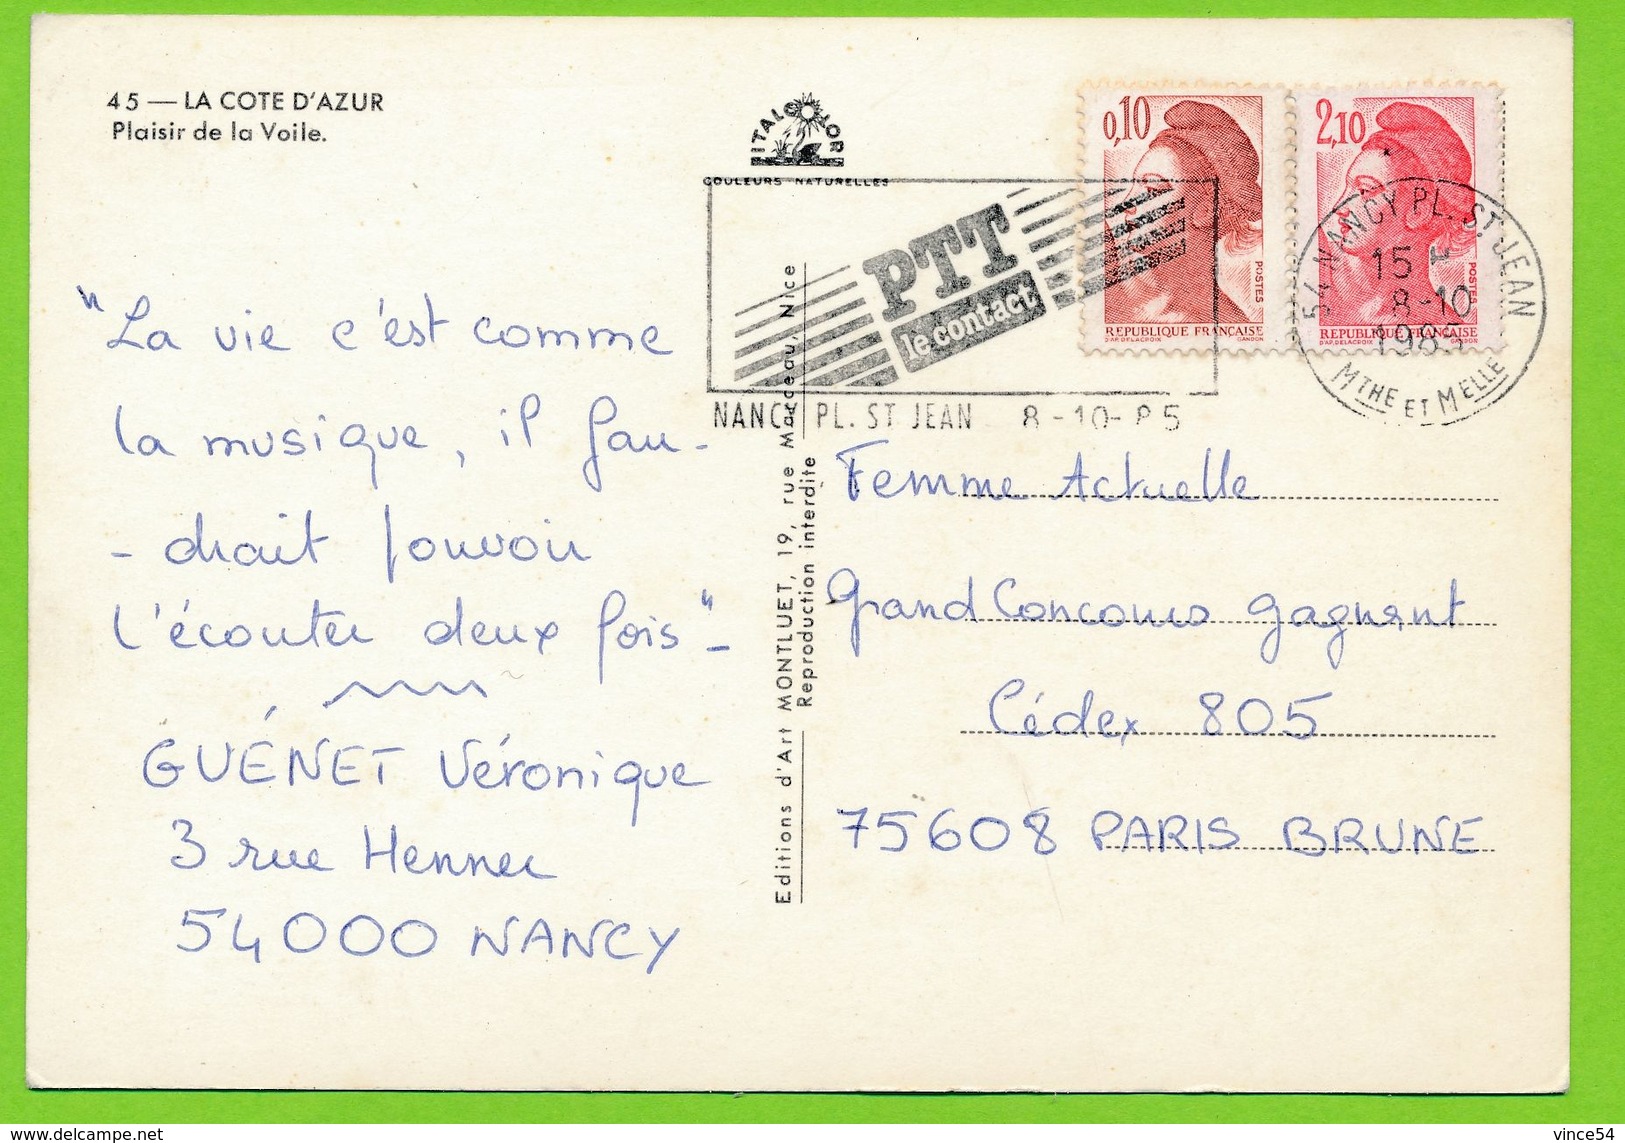 45 — LA COTE D'AZUR
Plaisir de la Voile.
ITALCOLOR
COULEURS NATURELLES
PTT
le contact
NANCY PL. ST JEAN 8-10-85
0,10
POSTES
REPUBLIQUE FRANÇAISE
D'AP. DELACROIX GANDON
2,10
POSTES
REPUBLIQUE FRANÇAISE
D'AP. DELACROIX GANDON
54 NANCY PL. ST JEAN
15 H
8-10
1985
MTHE ET MELLE
"La vie c'est comme
la musique, il fau-
- drait pouvoir
l'écouter deux fois"-
GUÉNET Véronique
3 rue Henner
54000 NANCY
Editions d'Art MONTLUET, 19, rue Marceau, Nice
Reproduction interdite
Femme Actuelle
Grand Concours gagnant
Cédex 805
75608 PARIS BRUNE
delcampe.net
vince54